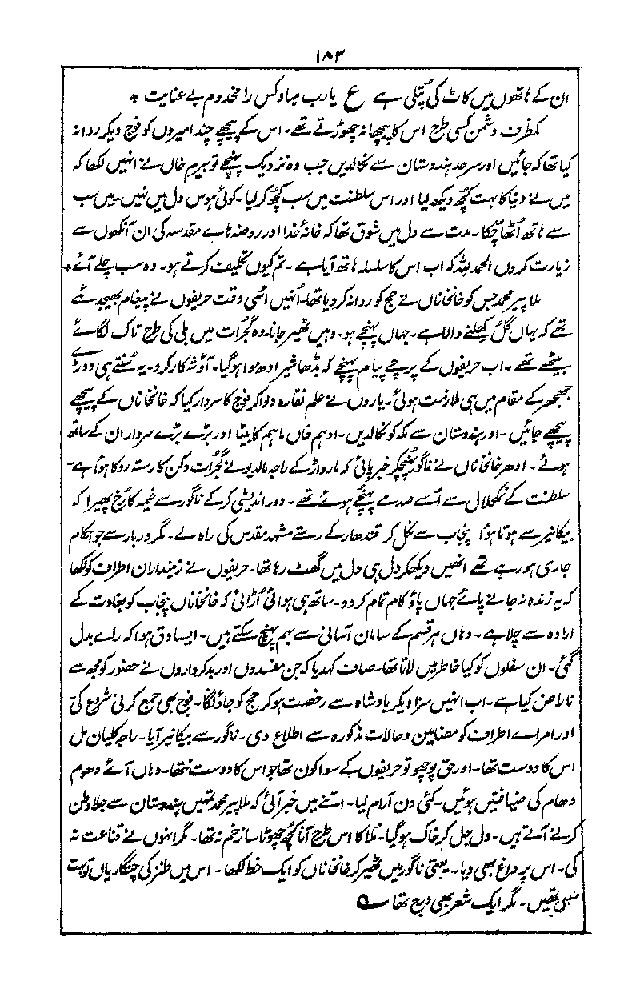 ۱۸۳
ان کے ہاتھوں میں کاٹ کی پتلی ہے ع یارب مباد کس را مخدوم بے عنایت ٭
کمظرف دشمن کسی طرح اس کا پیچھا نہ چھوڑتے تھے۔ اس کے پیچھے چند امیروں کو فوج دیکر روانہ
کیا تھا کہ جائیں اور سرحد ہندوستان سے نکالدیں جب وہ نزدیک پہنچے تو بیرم خاں نے انہیں لکھا کہ
میں نے دنیا کا بہت کچھ دیکھ لیا اور اس سلطنت میں سب کچھ کر لیا۔ کوئی ہوس دل میں نہیں۔ میں سب
سے ہاتھ اُٹھا چکا۔ مدت سے دل میں شوق تھا کہ خانۂ خدا اور روضہ ہاے مقدسہ کی ان آنکھوں سے
زیارت کروں الحمد للہ کہ اب اس کا سلسلہ ہاتھ آیا ہے۔ تم کیوں تکلیف کرتے ہو۔ وہ سب چلے آئے ٭
ملا پیر محمد جس کو خانخاناں نے حج کو روانہ کر دیا تھا۔ انہیں اُسی وقت حریفوں نے پیغام بھیجدئے
تھے کہ یہاں گل کھلنے والا ہے۔ جہاں پہنچے ہو۔ وہیں ٹھیر جانا وہ گجرات میں بلی کی طرح تاک لگائے
بیٹھے تھے۔ اب حریفوں کے پرچے پیام پہنچے کہ بڈھا شیر ادھ موا ہو گیا۔ آؤ شکار کرو۔ یہ سنتے ہی دوڑے
جھجھر کے مقام میں ہی ملازمت ہوئی۔ یاروں نے علم نقارہ دلوا کر فوج کا سردار کیا کہ خانخاناں کے پیچھے
پیچھے جائیں۔ اور ہندوستان سے مکہ کو نکالدیں۔ ادہم خاں ماہم کا بیٹا اور بڑے بڑے سردار ان کے ساتھ
ہوئے۔ ادھر خانخاناں نے ناگور پہنچکر خبر پائی کہ مارواڑ کے راجہ مالدیو نے گجرات دکن کا رستہ روکا ہوا ہے۔
سلطنت کے نمکحلال سے اُسے صدمے پہنچے ہوئے تھے۔ دور اندیشی کر کے ناگور سے خیمہ کا رخ پھیرا کہ
بیکانیر سے ہوتا ہوا پنجاب سے نکل کر قندھار کے رستے مشہد مقدس کی راہ لے۔ مگر دربار سے جو احکام
جاری ہو رہے تھے انھیں دیکھکر دل ہی دل میں گھٹ رہا تھا۔ حریفوں نے زمینداران اطراف کو لکھا
کہ یہ زندہ نہ جانے پائے جہاں پاؤ کام تمام کر دو۔ ساتھ ہی ہوائی اُڑائی کہ خانخاناں پنجاب کو بغاوت کے
ارادہ سے چلا ہے۔ وہاں ہر قسم کے سامان آسانی سے بہم پہنچ سکتے ہیں۔ ایسا دق ہوا کہ راے بدل
گئی۔ ان سفلوں کو کیا خاطر میں لاتا تھا۔ صاف کہدیا کہ جن مفسدوں اور بد کرداروں نے حضور کو مجھ سے
ناراض کیا ہے۔ اب انہیں سزا دیکر بادشاہ سے رخصت ہو کر حج کو جاؤنگا۔ فوج بھی جمع کرنی شروع کی
اور امراے اطراف کو مضامین و حالات مذکورہ سے اطلاع دی۔ ناگور سے بیکانیر آیا۔ راجہ کلیان مل
اس کا دوست تھا۔ اور حق پوچھو تو حریفوں کے سوا کون تھا جو اس کا دوست نہ تھا۔ وہاں آئے دھوم
دھام کی ضیافتیں ہوئیں۔ کئی دن آرام لیا۔ اتنے میں خبر آئی کہ ملا پیر محمد تمہیں ہندوستان سے جلا وطن
کرنے آتے ہیں۔ دل جل کر خاک ہو گیا۔ ملا کا اس طرح آنا کچھ چھوٹا سا زخم نہ تھا۔ مگر انہوں نے قناعت نہ
کی۔ اس پر داغ بھی دیا۔ یعنی ناگور میں ٹھیر کر خانخاناں کو ایک خط لکھا۔ اس میں طنز کی چنگاریاں تو بہت
سی تھیں۔ مگر ایک شعر بھی درج تھا ے